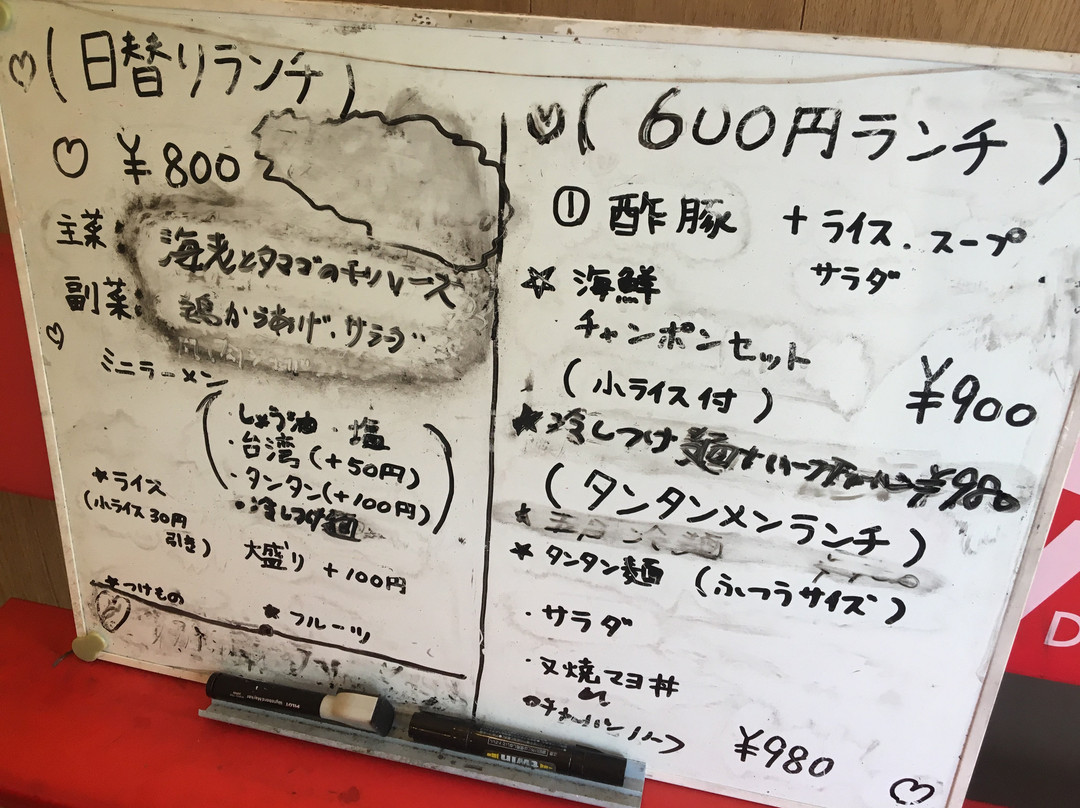 (日替りランチ)
¥800
主菜:海老とタマゴのチリソース
副菜:鶏からあげ.サラダ
ミニラーメン
(・しょうゆ油・塩
・台湾(+50円)
・タンタン(+100円)
・冷しつけ麺)
★ライス
(小ライス30円
引き)
大盛り +100円
★つけもの
★フルーツ
(600円ランチ)
① 酢豚 +ライス.スープ
サラダ
☆海鮮
チャンポンセット
(小ライス付) ¥900
★冷しつけ麺+ハーフチャーハン¥980
(タンタンメンランチ)
★タンタン麺 (ふつうサイズ)
・サラダ
・叉焼マヨ丼
or
チャーハン ハーフ
¥980
PILOT
D